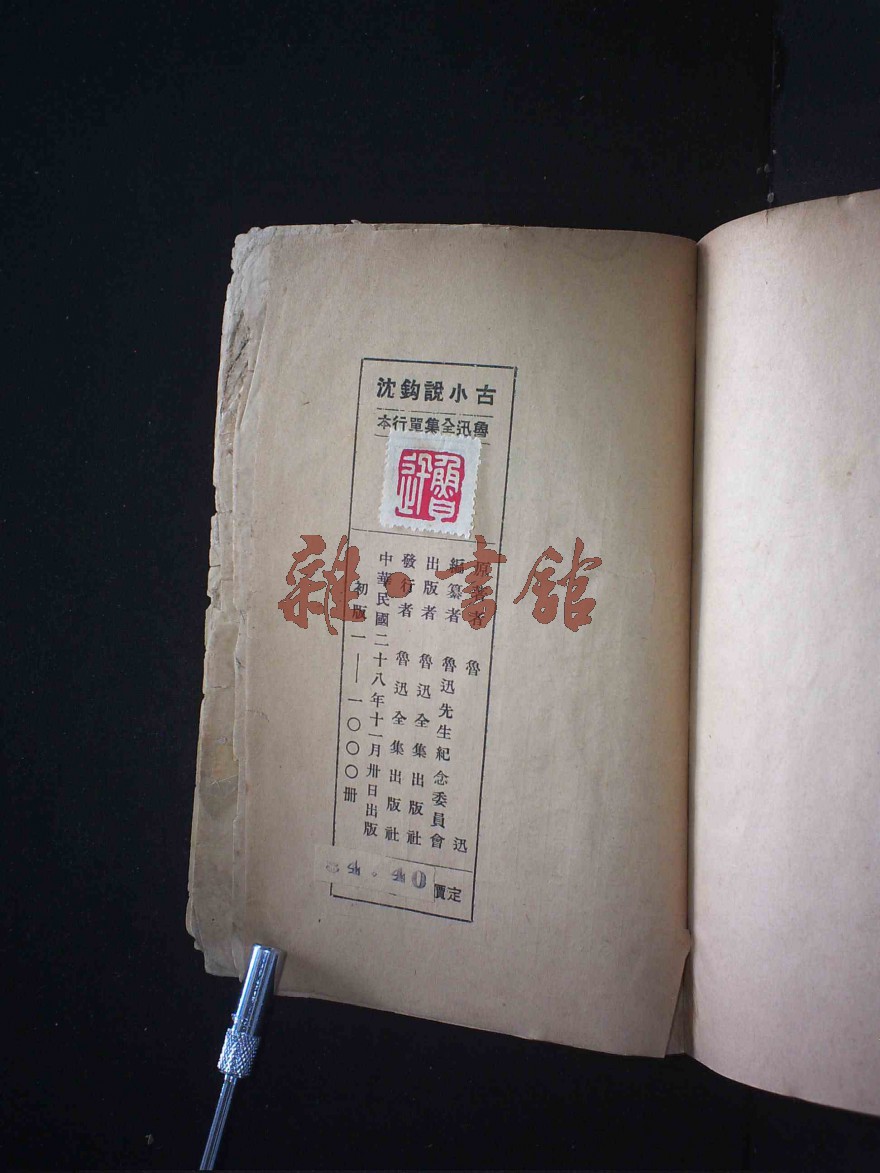 古小說鈎沈
魯迅全集單行本
魯迅
原著者 魯迅
編纂者 魯迅先生紀念委員會
出版者 魯迅全集出版社
發行者 魯迅全集出版社
中華民國二十八年十一月卅日出版
初版一——一〇〇〇冊
定價
34.40
雜·書館